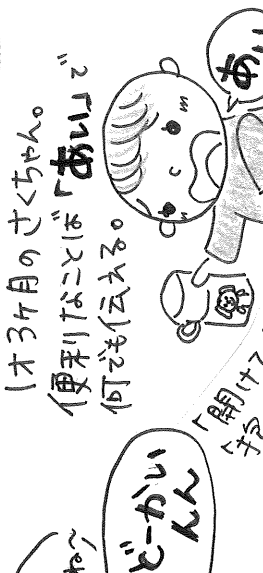 1才3ヶ月のさくちゃん。
便利なことば「あい」で
何でも伝える。
あい
「開けて
どーかい
んん